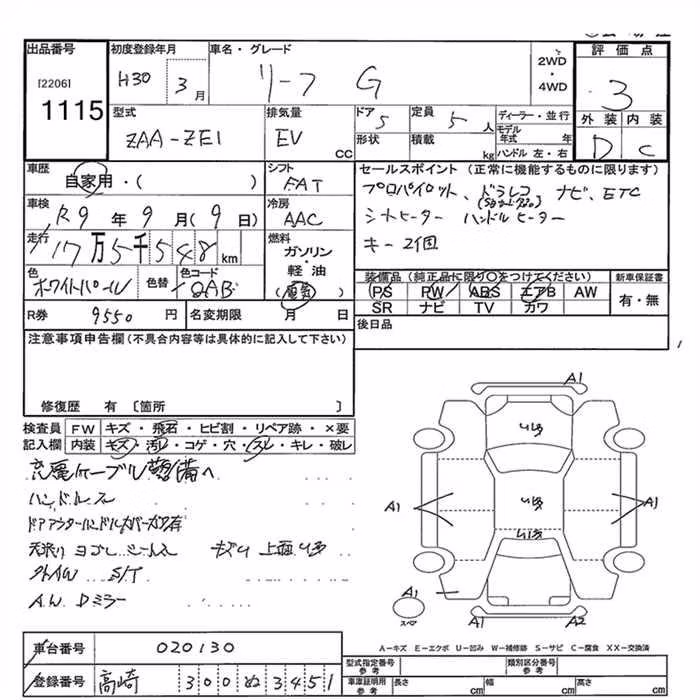 出品番号 初度登録年月 車名・グレード 評価点
[2206] H30 3月 リーフ G 2WD・4WD 3
1115 外装 内装
型式 排気量 ドア 定員 ディーラー・並行 D C
ZAA-ZE1 EV CC 5 5人 モデル年式 年
形状 積載 kg ハンドル 左・右
車歴 シフト セールスポイント (正常に機能するものに限ります)
自家用・( ) FAT プロパイロット、ドラレコ ナビ、ETC
車検 冷房 シートヒーター ハンドルヒーター
R9年9月(9日) AAC キー2個
走行 燃料
17万5千548km ガソリン・軽油
色 色替 色コード 装備品 (純正品に限り○をつけてください) 新車保証書
ホワイトパール QAB (電気) PS PW ABS エアB AW 有・無
SR ナビ TV カワ
R券 9550円 名変期限 月 日 後日品
注意事項申告欄 (不具合内容等は具体的に記入して下さい)
修復歴 有 〔箇所 〕
検査員 FW キズ・飛石・ヒビ割・リペア跡・×要
記入欄 内装 キズ・汚レ・コゲ・穴・スレ・キレ・破レ
充電ケーブル
ハンドルスレ
天張り ヨゴレ
外AW S/T
A.W. Dミラー
A1
A1 A1
A1
スペア A1 A2
A-キズ E-エクボ U-凹み W-補修跡 S-サビ C-腐食 XX-交換済
車台番号 020130
型式指定番号 参考 類別区分番号 参考
登録番号 高崎 300 ぬ 3451
車庫証明用 参考 長さ cm 幅 cm 高さ cm